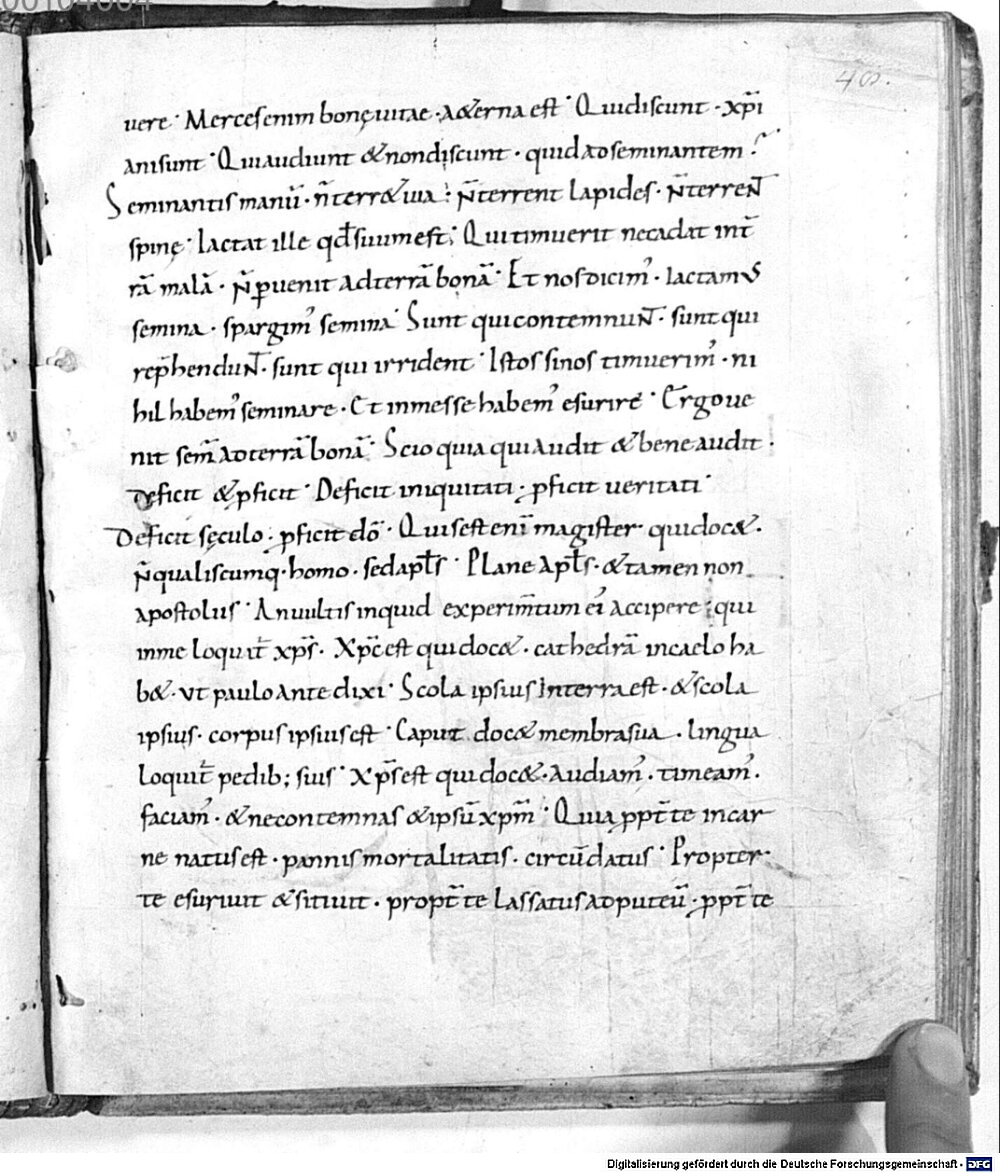 48.
uere· Merces enim bonę uitae· aeterna est· Qui discunt· xp̄i
ani sunt· Qui audiunt & non discunt· quid ad seminantem?
Seminantis manū· n̄ terr& uia· n̄ terrent lapides· n̄ terreNT
spinę· Iactat ille qđ suum est; Qui timuerit ne cadat in t̄
rā malā· n̄ puenit ad terrā bonā· Et nos dicim᾽· Iactamus
semina· spargim᾽ semina· Sunt qui contemnuNT· sunt qui
rep̄henduNT· sunt qui irrident· Istos si nos timuerim᾽· ni
hil habem᾽ seminare· Et in messe habem᾽ esurire· Ergo ue
nit sem̄ ad terrā bonā· Scio quia qui audit & bene audit·
deficit & pficit· Deficit iniquitati· pficit ueritati·
Deficit sęculo· pficit dō· Quis est enī magister· qui doc&·
n̄ qualiscumq· homo· sed apłs· Plane apłs· & tamen non
apostolus· An uultis inquid experim̄tum ei᾽ accipere· qui
in me loquit᾽ xp̄s· Xp̄c est qui doc&· cathedrā in caelo ha
b&· ut paulo ante dixi· Scola ipsius in terra est· & scola
ipsius· corpus ipsius est· Caput doc& membra sua· lingua
loquit᾽ pedib; suis· Xp̄s est qui doc&· Audiam᾽· timeam᾽·
faciam᾽· & ne contemnas & ipsū xp̄m· Quia ppt̄ te in car
ne natus est· pannis mortalitatis· circūdatus· Propter·
te esuriuit & sitiuit· propt̄ te lassatus ad puteū· ppt̄ te
Digitalisierung gefördert durch die Deutsche Forschungsgemeinschaft - DFG